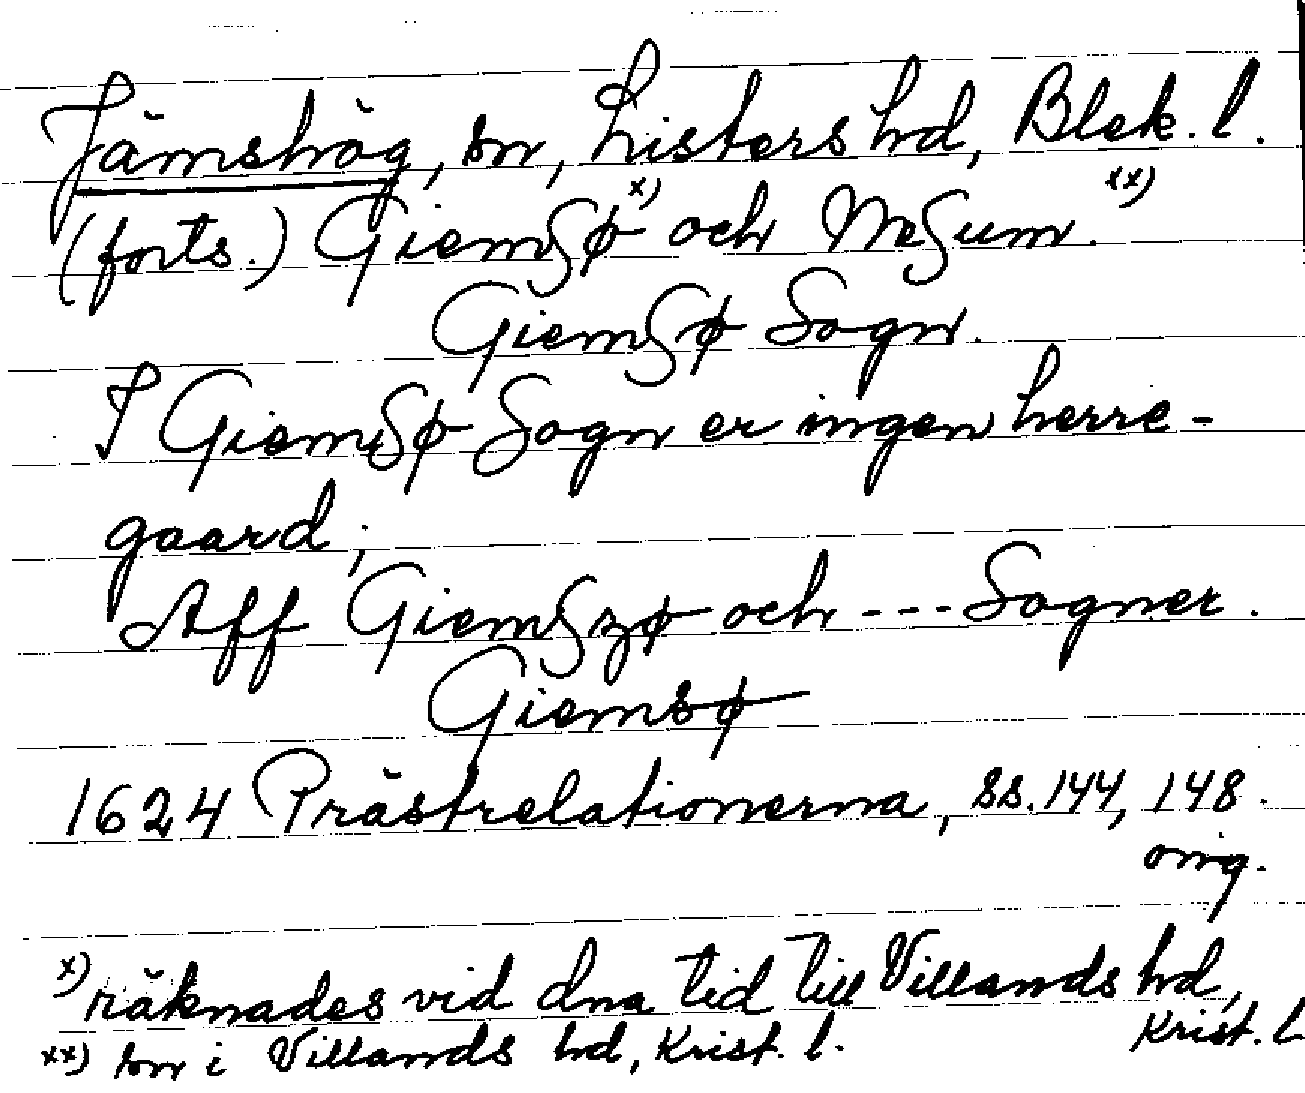 Jämshög, sn, Listers hd, Blek. l.
(forts.) Giemsø x) och Nesum. xx)
Giemsø Sogn.
I Giemsø Sogn er ingen herre-
gaard;
Aff Giemszø och --- Sogner.
Giemsø
1624 Prästrelationerna, ss. 144, 148.
orig.
x) räknades vid dna tid till Villands hd,
Krist. l.
xx) sn i Villands hd, Krist. l.